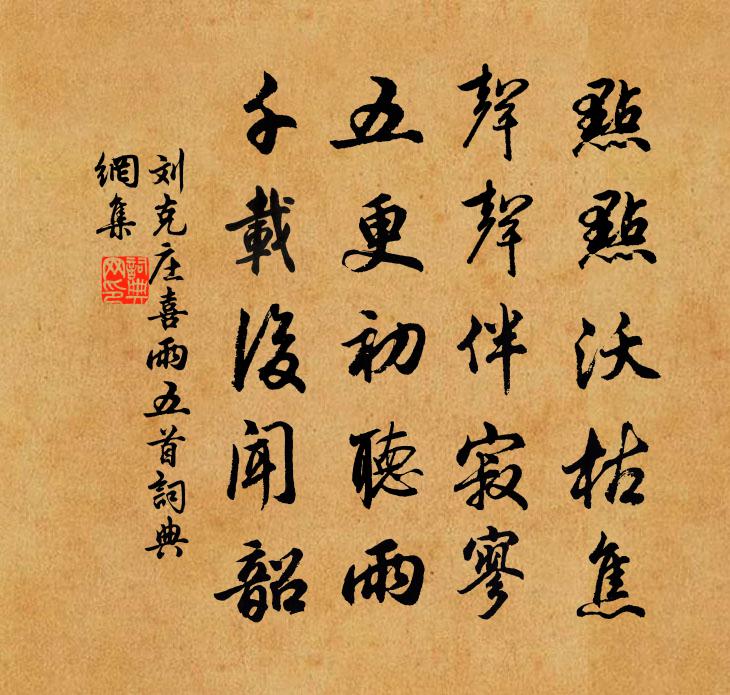 點點沃枯焦
聲聲伴寂寥
五更初聽雨
千載後聞韶
刘克庄喜雨五首詞典
網集
詞典
网印